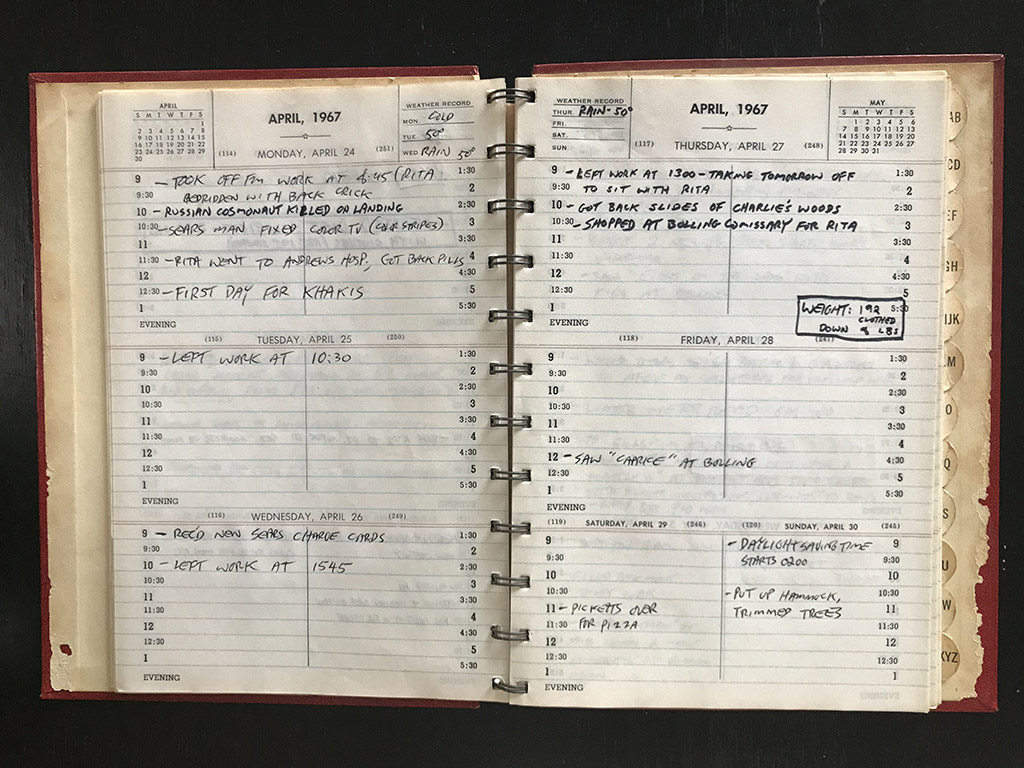 APRIL
S M T W T F S
1
2 3 4 5 6 7 8
9 10 11 12 13 14 15
16 17 18 19 20 21 22
23 24 25 26 27 28 29
30
APRIL, 1967
WEATHER RECORD
MON. COLD
TUE 50°
WED. RAIN 50°
(114) MONDAY, APRIL 24 (251)
9 - TOOK OFF FM WORK AT 6:45 (RITA 1:30
9:30 BEDRIDDEN WITH BACK CRICK 2
10 - RUSSIAN COSMONAUT KILLED ON LANDING 2:30
10:30 - SEARS MAN FIXED COLOR TV (COLOR STRIPES) 3
11 3:30
11:30 - RITA WENT TO ANDREWS HOSP., GOT BACK PILLS 4
12 4:30
12:30 - FIRST DAY FOR KHAKIS 5
1 5:30
EVENING
(115) TUESDAY, APRIL 25 (250)
9 - LEFT WORK AT 10:30 1:30
9:30 2
10 2:30
10:30 3
11 3:30
11:30 4
12 4:30
12:30 5
1 5:30
EVENING
(116) WEDNESDAY, APRIL 26 (249)
9 - REC'D NEW SEARS CHARGE CARDS 1:30
9:30 2
10 - LEFT WORK AT 1545 2:30
10:30 3
11 3:30
11:30 4
12 4:30
12:30 5
1 5:30
EVENING
WEATHER RECORD
THUR. RAIN-50°
FRI.
SAT.
SUN.
APRIL, 1967
MAY
S M T W T F S
1 2 3 4 5 6
7 8 9 10 11 12 13
14 15 16 17 18 19 20
21 22 23 24 25 26 27
28 29 30 31
(117) THURSDAY, APRIL 27 (248)
9 - LEFT WORK AT 1300 - TAKING TOMORROW OFF 1:30
9:30 TO SIT WITH RITA 2
10 - GOT BACK SLIDES OF CHARLIE'S WOODS 2:30
10:30 - SHOPPED AT BOLLING COMISSARY FOR RITA 3
11 3:30
11:30 4
12 4:30
12:30 5
1 5:30
WEIGHT: 192
CLOTHED
DOWN 8 LBS
EVENING
(118) FRIDAY, APRIL 28 (247)
9 1:30
9:30 2
10 2:30
10:30 3
11 3:30
11:30 4
12 - SAW "CAPRICE" AT BOLLING 4:30
12:30 5
1 5:30
EVENING
(119) SATURDAY, APRIL 29 (246) (120) SUNDAY, APRIL 30 (245)
9 - DAYLIGHT SAVING TIME 9
9:30 STARTS 0200 9:30
10 10
10:30 - PUT UP HAMMOCK, 10:30
11 - PICKETTS OVER TRIMMED TREES 11
11:30 FOR PIZZA 11:30
12 12
12:30 12:30
1 1
EVENING
AB
CD
EF
GH
IJK
LM
O
Q
S
U
W
XYZ